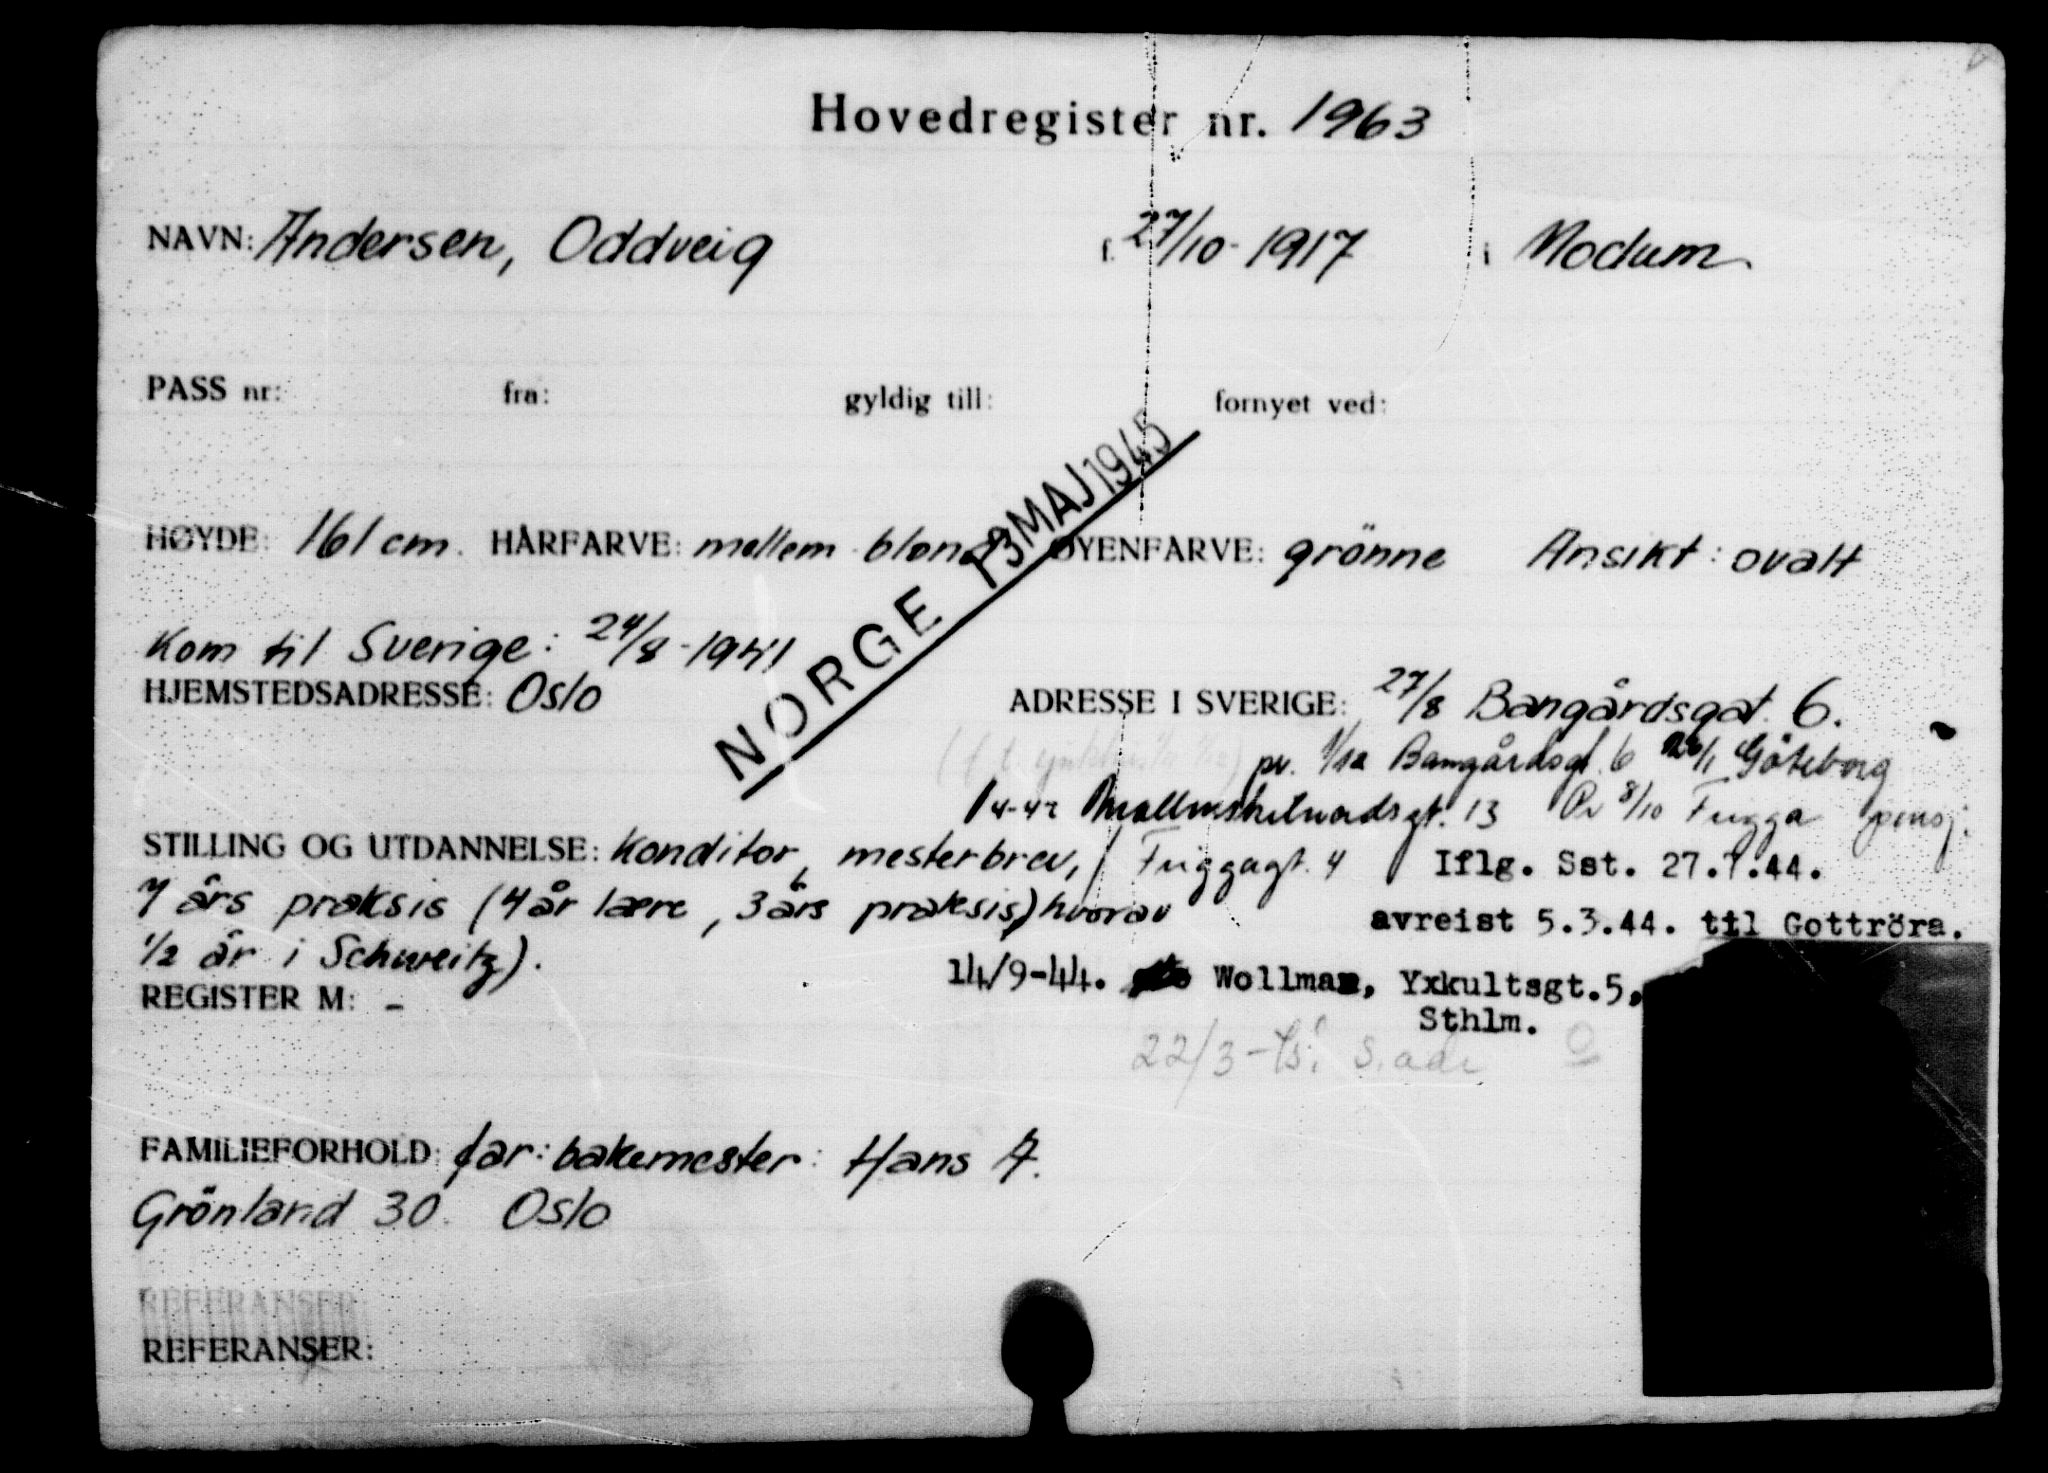 Hovedregister nr. 1963
NAVN: Andersen, Oddveig f. 27/10-1917 i Modum
PASS nr: fra: gyldig till: fornyet ved:
HØYDE: 161 cm. HÅRFARVE: mellem blond ØYENFARVE: grönne Ansikt: ovalt
NORGE 13 MAJ 1945
Kom til Sverige: 24/8-1941
HJEMSTEDSADRESSE: Oslo
ADRESSE I SVERIGE: 27/8 Bangårdsgat. 6.
pr. 1/12 Bangårdsgt. 6 Göteborg
13 Pr 8/10 Fugga pensj.
Fuggagt. 4 Iflg. Sst. 27.7.44.
avreist 5.3.44. til Gottröra.
14/9-44. Wollmar, Yxkullsgt.5,
Sthlm.
22/3-45: s. adr
STILLING OG UTDANNELSE: Konditor, mesterbrev,
7 års praksis (4 år lære, 3 års praksis) hvorav
1/2 år i Schweitz).
REGISTER M: -
FAMILIEFORHOLD: far: bakemester: Hans A.
Grönland 30. Oslo
REFERANSER:
REFERANSER: